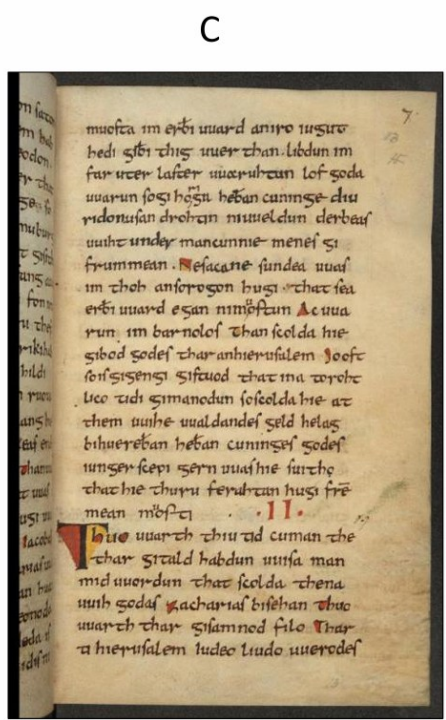 C
7
muosta im erƀi uuard aniro iugut
hedi giƀi thig uuer than. libdun im
far uter laster uuaruhtun lof goda
uuarun sogi heƀan cuninge diu
ridonusan drohtin niuueldun derbeas
uuiht under mancunnie menes gi
frummean. Nesacane sundea uuas
im thoh ansorogon hugi. that sea
erƀi uuard egan nimostun Ac uua
run im barnolos Than scolda hie
gibod godes thar anhierusalem Sooft
sois gigengi gistuod that ina toroht
lico tidi gimanodun soscolda hie at
them uuihe uualdandes geld helag
bihuereƀan heƀan cuninges godes
iungerscepi gern uuashie suitho
that hie thuru ferahtan hugi frē
mean mosti ·II·
Thuo uuarth thiu tid cuman the
thar gitald habdun uuisa man
mid uuordun that scolda thena
uuih godas Zacharias bisehan Thuo
uuarth thar gisamnod filo Thar
ti hierusalem Iudeo liudo uuerodes